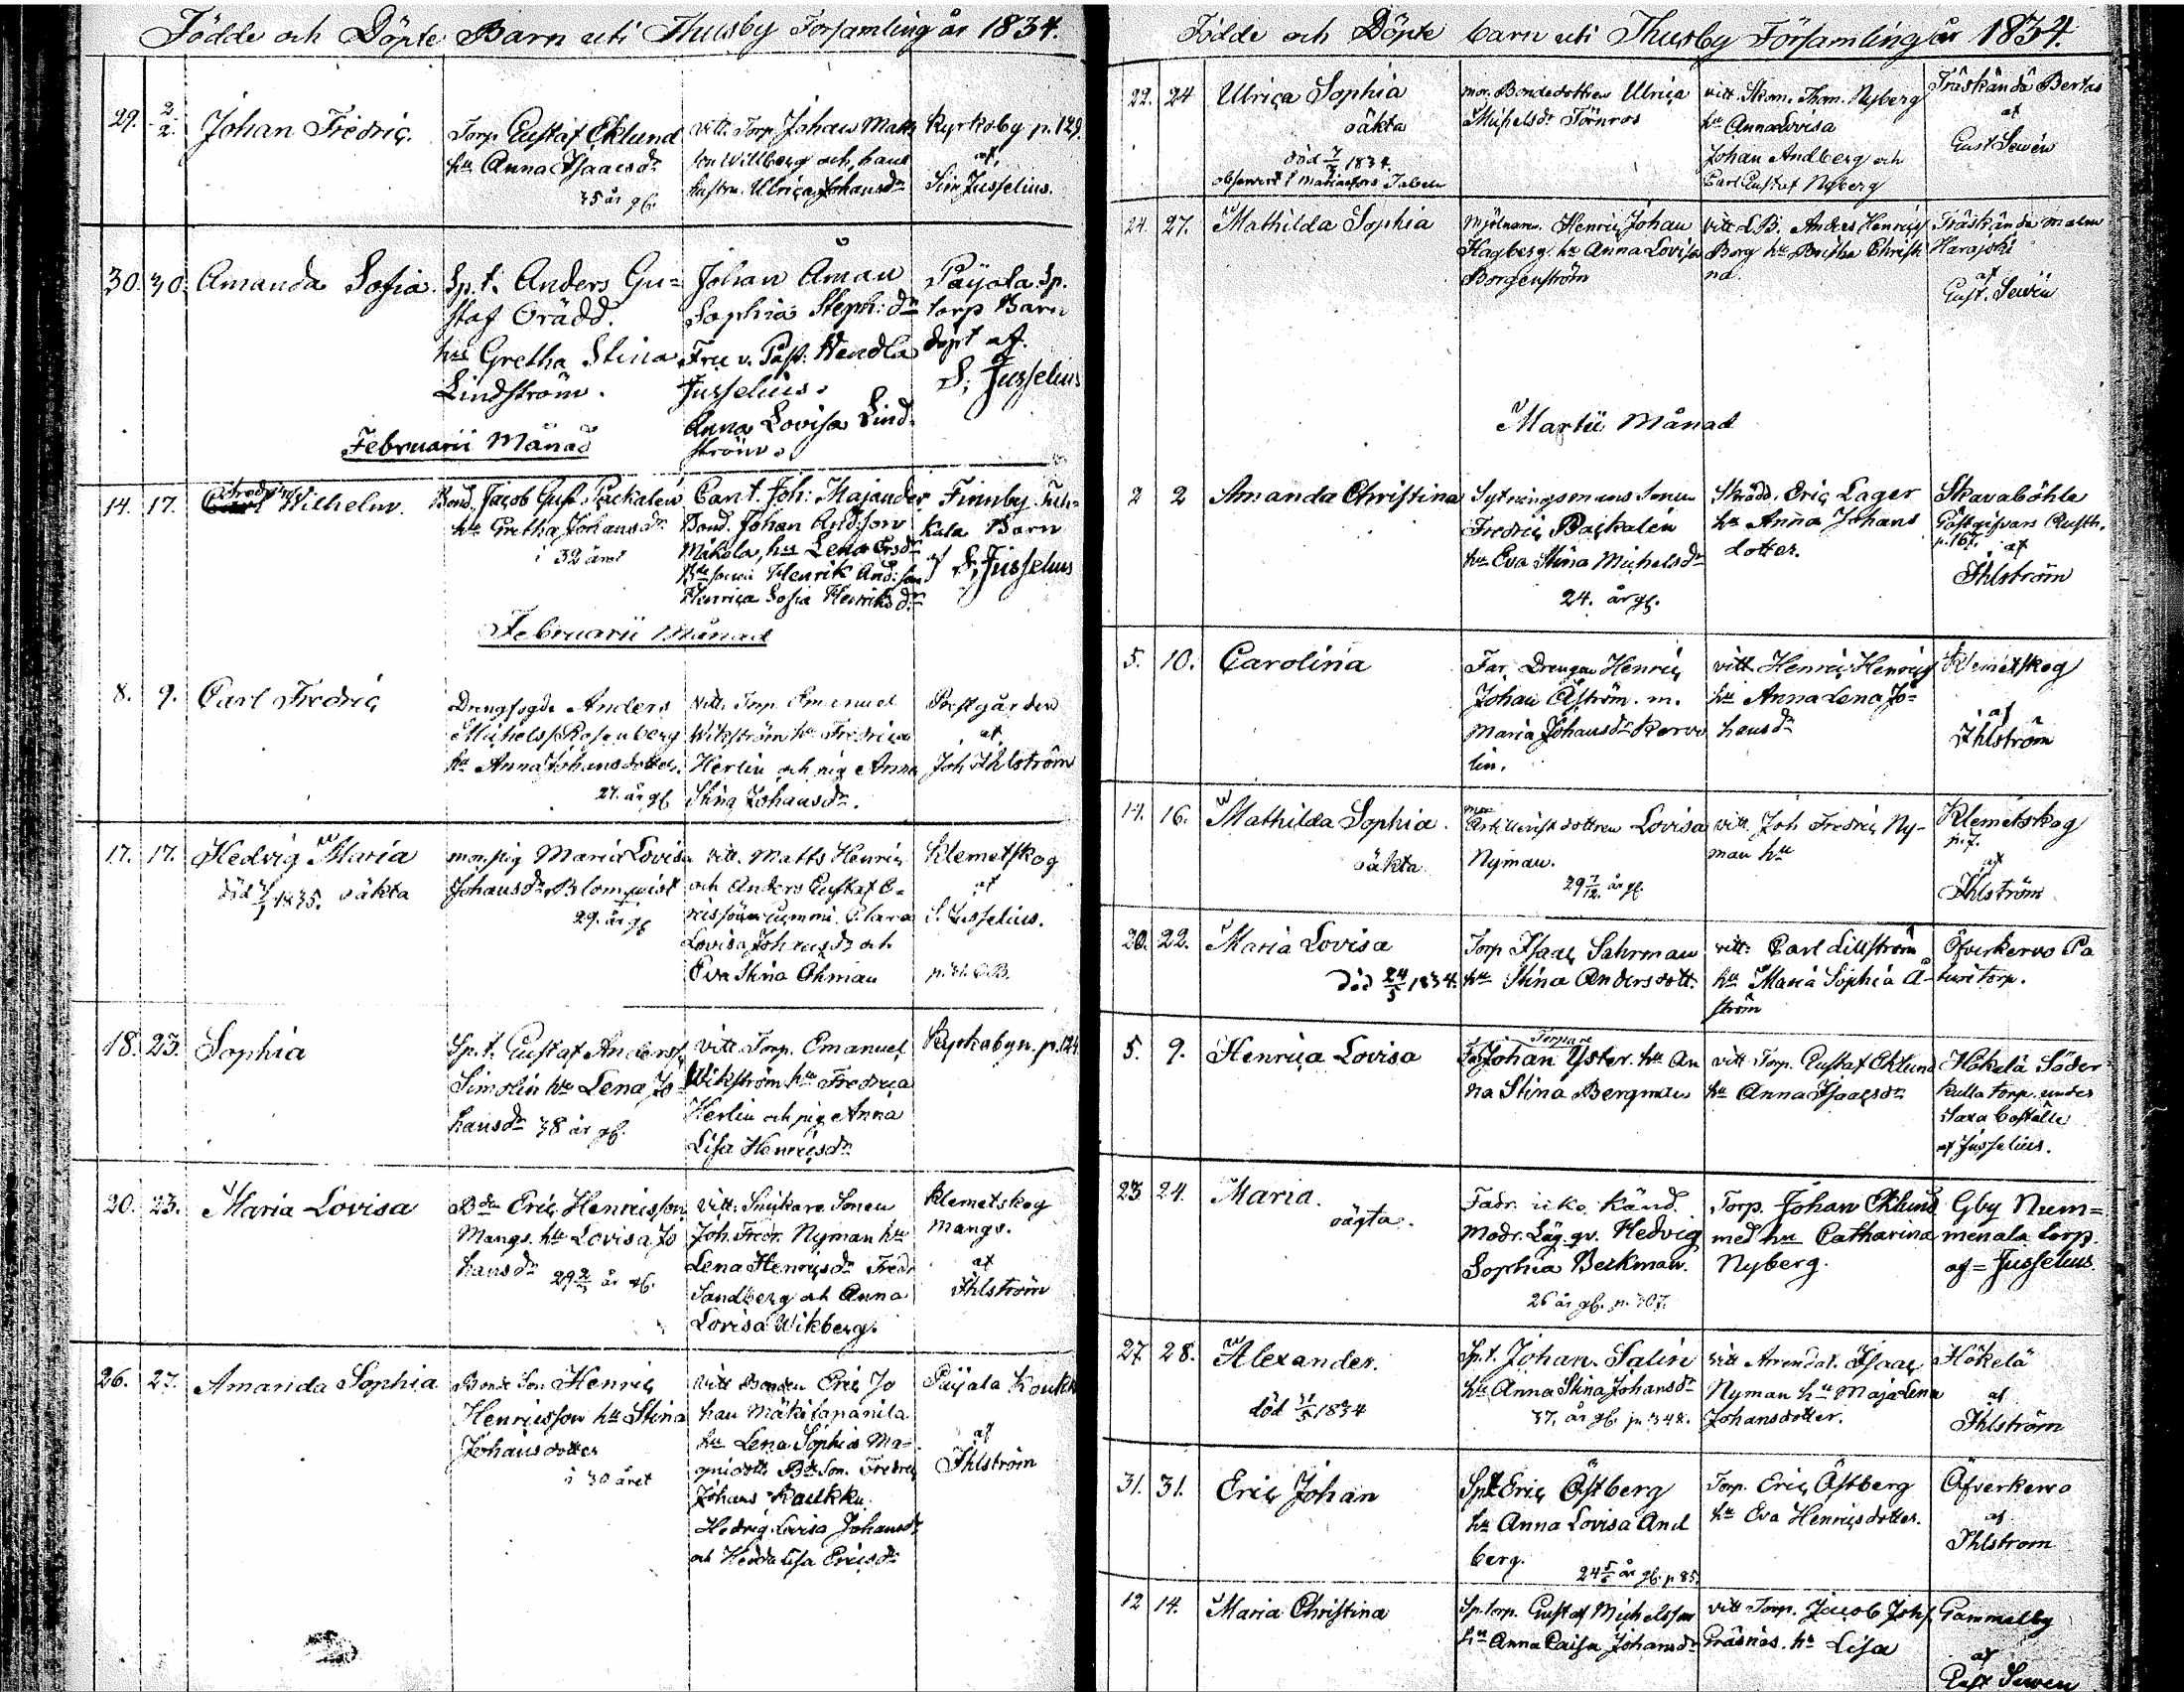 Födde och Döpte Barn uti Thusby Församling år 1834.
29. 2/2. Johan Fredric.
Torp. Gustaf Eklund
hu Anna Isaacsdr
35 år gl.
vitt. Torp. Johan Matts
son Willberg och hans
hustru Ulrica Johansdr
Kyrkoby p. 129.
af
Sim Jusselius.
30. 30. Amanda Sofia.
Sp.t. Anders Gu=
staf Orädd.
hu Gretha Stina
Lindström.
Johan Åman
Sophia Steph: dr
Fru v. Past. Hendla
Jusselius.
Anna Lovisa Lind-
ström.
Päyola Sp.
torp Barn
döpt af
S. Jusselius
Februarii Månad
14. 17. Wilhelm.
Bond. Jacob Gust. Packalén
hu Gretha Johansdr
i 32 året
Cant. Joh: Majander
Bond. Johan And:son
Mäkola, hu Lena Ersdr
Henrik And:son
Henrica Sofia Henriksdr
Finnby
Barn
af S. Jusselius
Februarii Månad
8. 9. Carl Fredric
Drengfogde Anders
Michelss Rosenberg
hu Anna Johansdotter.
27. år gl
vitt. Torp. Emanuel
Wikström hu Fredrica
Herlin och pig Anna
Stina Johansdr.
Prestgården
af
Joh Ihlström
17. 17. Hedvig Maria
död 1835. oäkta
mor. pig Maria Lovisa
Johansdr Blomqvist
29. år gl
vitt. Matts Henric
och Anders Gustaf E-
ricssöner Gummi. Clara
Lovisa Johansdr och
Eva Stina Öhman
Klemetskog
af
S. Jusselius.
18. 23. Sophia
Sp.t. Gustaf Anderss
Simolin hu Lena Jo-
hansdr 38 år gl.
vitt Torp. Emanuel
Wikström hu Fredrica
Herlin och pig Anna
Lisa Henricsdr
Kyrkobyn. p. 124
20. 23. Maria Lovisa
Bdn Eric Henricsson
Mangs. hu Lovisa Jo
hansdr 29 år gl.
vitt. Snickare Sonen
Joh. Fredr. Nyman hu
Lena Henricsdr Fredr
Sandberg och Anna
Lovisa Wikberg.
Klemetskog
Mangs.
af
Ihlström
26. 27. Amanda Sophia
Bonde Son Henric
Henricsson hu Stina
Johansdotter
i 30 året
vitt Bonden Eric Jo
han Mäkitapanila
hu Lena Sophia Ma-
gnidotter Bde Son. Fredric
Johans Koukku
Hedvig Lovisa Johansdr
och Hedda Lisa Ericsdr
Päyala Koukk
af
Ihlström
Födde och Döpte barn uti Thusby Församling år 1834.
22. 24 Ulrica Sophia
oäkta
död 1834.
mor. Bondedottren Ulrica
Michelsdr Törnros
vitt. Skom. Thom. Nyberg
hu Anna Lovisa
Johan Andberg och
Carl Gustaf Nyberg
Träskända Bertas
af
Gust Sewén
24. 27. Mathilda Sophia
Mjölnaren Henric Johan
Hagberg. hu Anna Lovisa
Borgenström
vitt L.B. Anders Henricss
Borg hu Britha Christi
na.
Träskända malm
Harajoki
af
Gust. Sewén
Martii Månad
2 2 Amanda Christina
Sytningsmans Sonen
Fredric Packalén
hu Eva Stina Michelsdr
24. år gl.
Skrädd. Eric Lager
hu Anna Johans
dotter.
Skavaböhle
Gästgifvars Rusth.
p. 167. af
Ihlström
5. 10. Carolina
Far. Drengen Henric
Johan Åström. m.
Maria Johansdr Kervo
lin.
vitt. Henric Henricss
hu Anna Lena Jo-
hansdr
Klemetskog
af
Ihlström
11. 16. Mathilda Sophia.
oäkta
mor
Artilleristdottren Lovisa
Nyman.
29 7/12 år gl.
vitt. Joh Fredric Ny-
man hu
Klemetskog
p. 7.
af
Ihlström
20. 22. Maria Lovisa
död 24/5 1834.
Torp Isaac Sahrman
hu Stina Andersdott.
vitt: Carl Lillström
hu Maria Sophia Å-
ström
Öfverkervo Pa
turi torp.
5. 9. Henrica Lovisa
Torpare
Johan Yster. hu An
na Stina Bergman
vitt Torp. Gustaf Eklund
hu Anna Isaacsdr
Hökelä Söder
kulla torp under
Boställe
af Jusselius.
23. 24. Maria.
oägta.
Fadr. icke känd.
Modr. Lög. qv. Hedvig
Sophia Beckman.
26 år gl. p. 307.
Torp. Johan Eklund
med hu Catharina
Nyberg.
Gby Num=
menala torp
af = Jusselius.
27. 28. Alexander.
död 1834
Sp.t. Johan Salin
hu Anna Stina Johansdr
37. år gl. p. 348.
vitt Arrendat. Isaac
Nyman hu Maja Lena
Johansdotter.
Hökelä
af
Ihlström
31. 31. Eric Johan
Spt Eric Östberg
hu Anna Lovisa And
berg.
24 5/6 år gl. p 85.
Torp. Eric Östberg
hu Eva Henricsdotter.
Öfverkervo
af
Ihlström
12 14. Maria Christina
Sp.torp. Gustaf Michelsson
hu Anna Caisa Johansdr
vitt Torp. Jacob Johs
Gräsnäs. hu Lisa
Gammelby
af
Gust Sewén